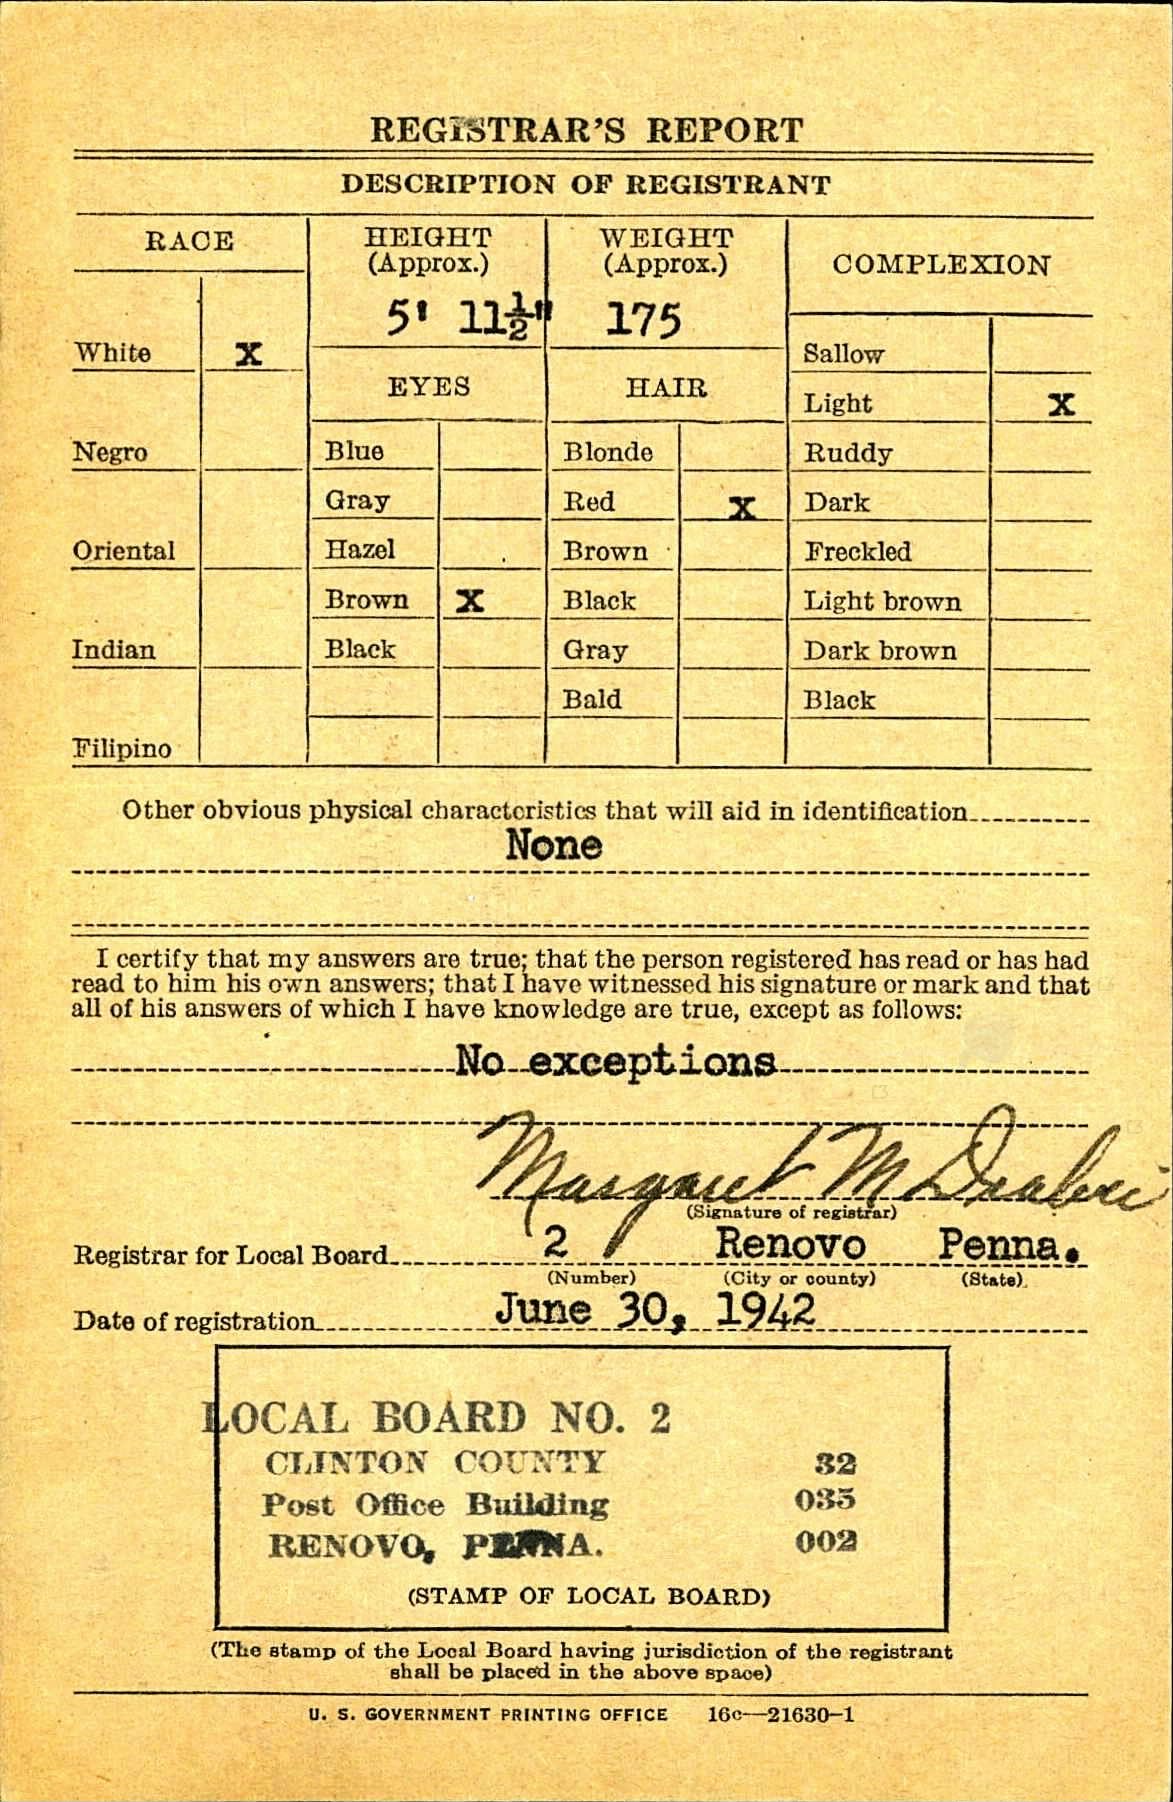 REGISTRAR'S REPORT
DESCRIPTION OF REGISTRANT
RACE
HEIGHT
(Approx.)
WEIGHT
(Approx.)
COMPLEXION
5' 11½"
175
White X
Sallow
EYES
HAIR
Light X
Negro
Blue
Blonde
Ruddy
Gray
Red X
Dark
Oriental
Hazel
Brown
Freckled
Brown X
Black
Light brown
Indian
Black
Gray
Dark brown
Bald
Black
Filipino
Other obvious physical characteristics that will aid in identification
None
I certify that my answers are true; that the person registered has read or has had
read to him his own answers; that I have witnessed his signature or mark and that
all of his answers of which I have knowledge are true, except as follows:
No exceptions
Margaret M
(Signature of registrar)
Registrar for Local Board 2 Renovo Penna.
(Number) (City or county) (State)
Date of registration June 30, 1942
LOCAL BOARD NO. 2
CLINTON COUNTY 32
Post Office Building 035
RENOVO, PENNA. 002
(STAMP OF LOCAL BOARD)
(The stamp of the Local Board having jurisdiction of the registrant
shall be placed in the above space)
U. S. GOVERNMENT PRINTING OFFICE 16c—21630-1